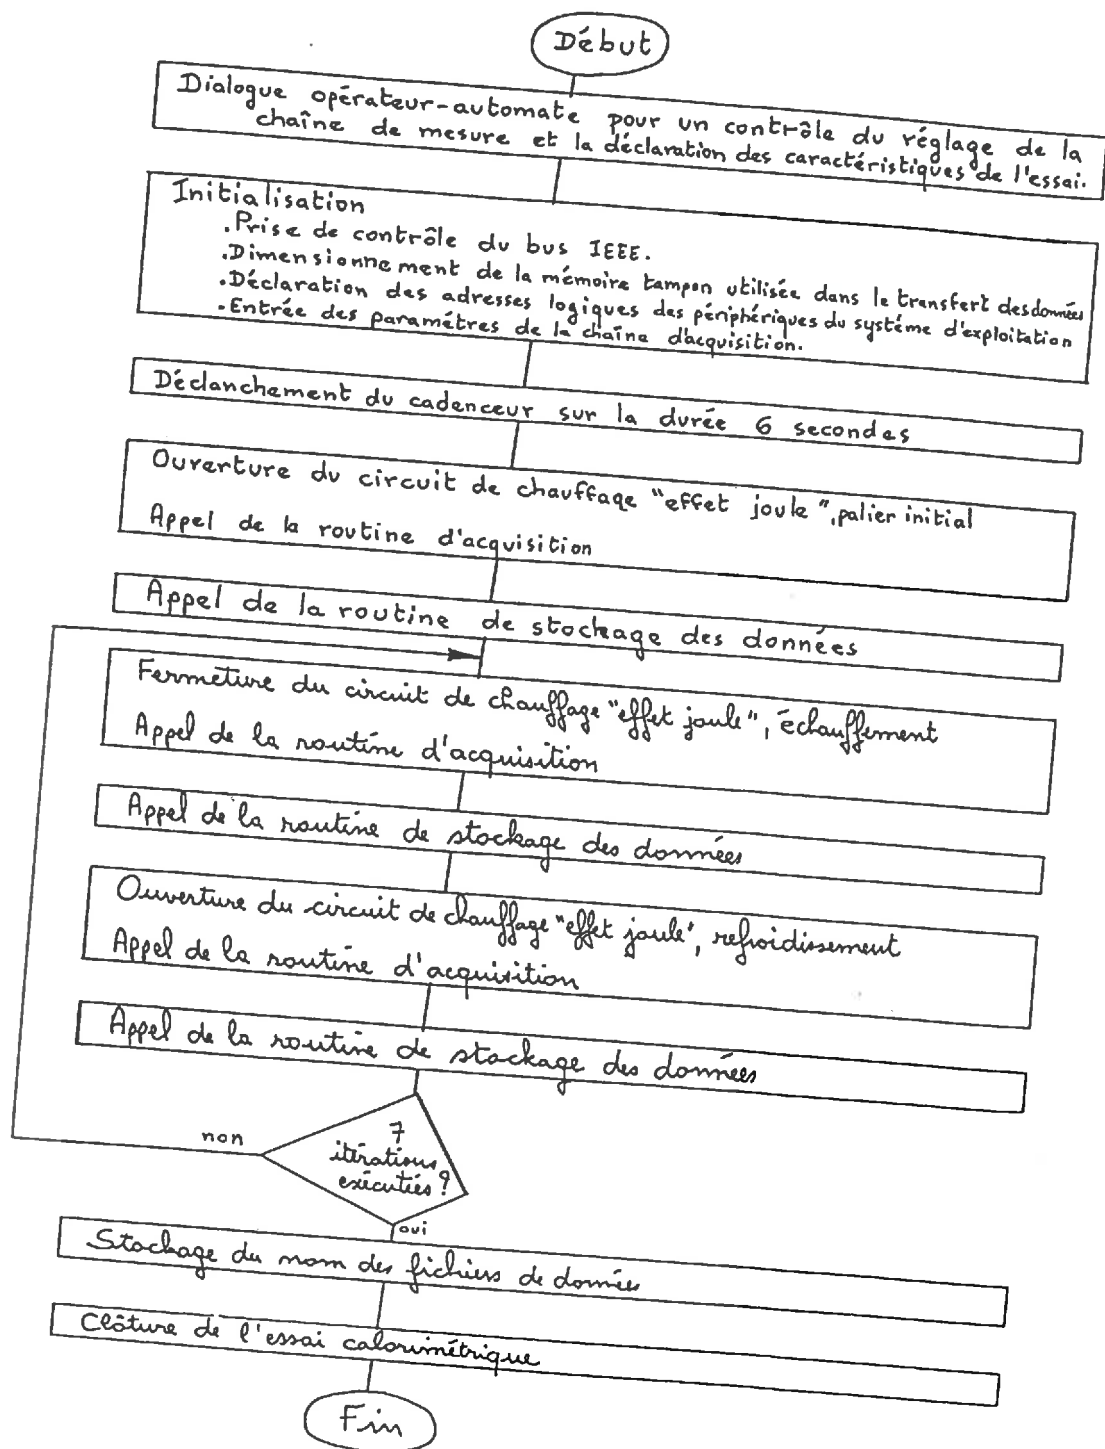 Début
Dialogue opérateur-automate pour un contrôle du réglage de la
chaîne de mesure et la déclaration des caractéristiques de l'essai.
Initialisation
.Prise de contrôle du bus IEEE.
.Dimensionnement de la mémoire tampon utilisée dans le transfert des données
.Déclaration des adresses logiques des périphériques du systéme d'exploitation
.Entrée des paramétres de la chaîne d'acquisition.
Déclanchement du cadenceur sur la durée 6 secondes
Ouverture du circuit de chauffage "effet joule", palier initial
Appel de la routine d'acquisition
Appel de la routine de stockage des données
Fermeture du circuit de chauffage "effet joule", échauffement
Appel de la routine d'acquisition
Appel de la routine de stockage des données
Ouverture du circuit de chauffage "effet joule", refroidissement
Appel de la routine d'acquisition
Appel de la routine de stockage des données
non
7
itérations
exécutées?
oui
Stockage du nom des fichiers de données
Clôture de l'essai calorimétrique
Fin